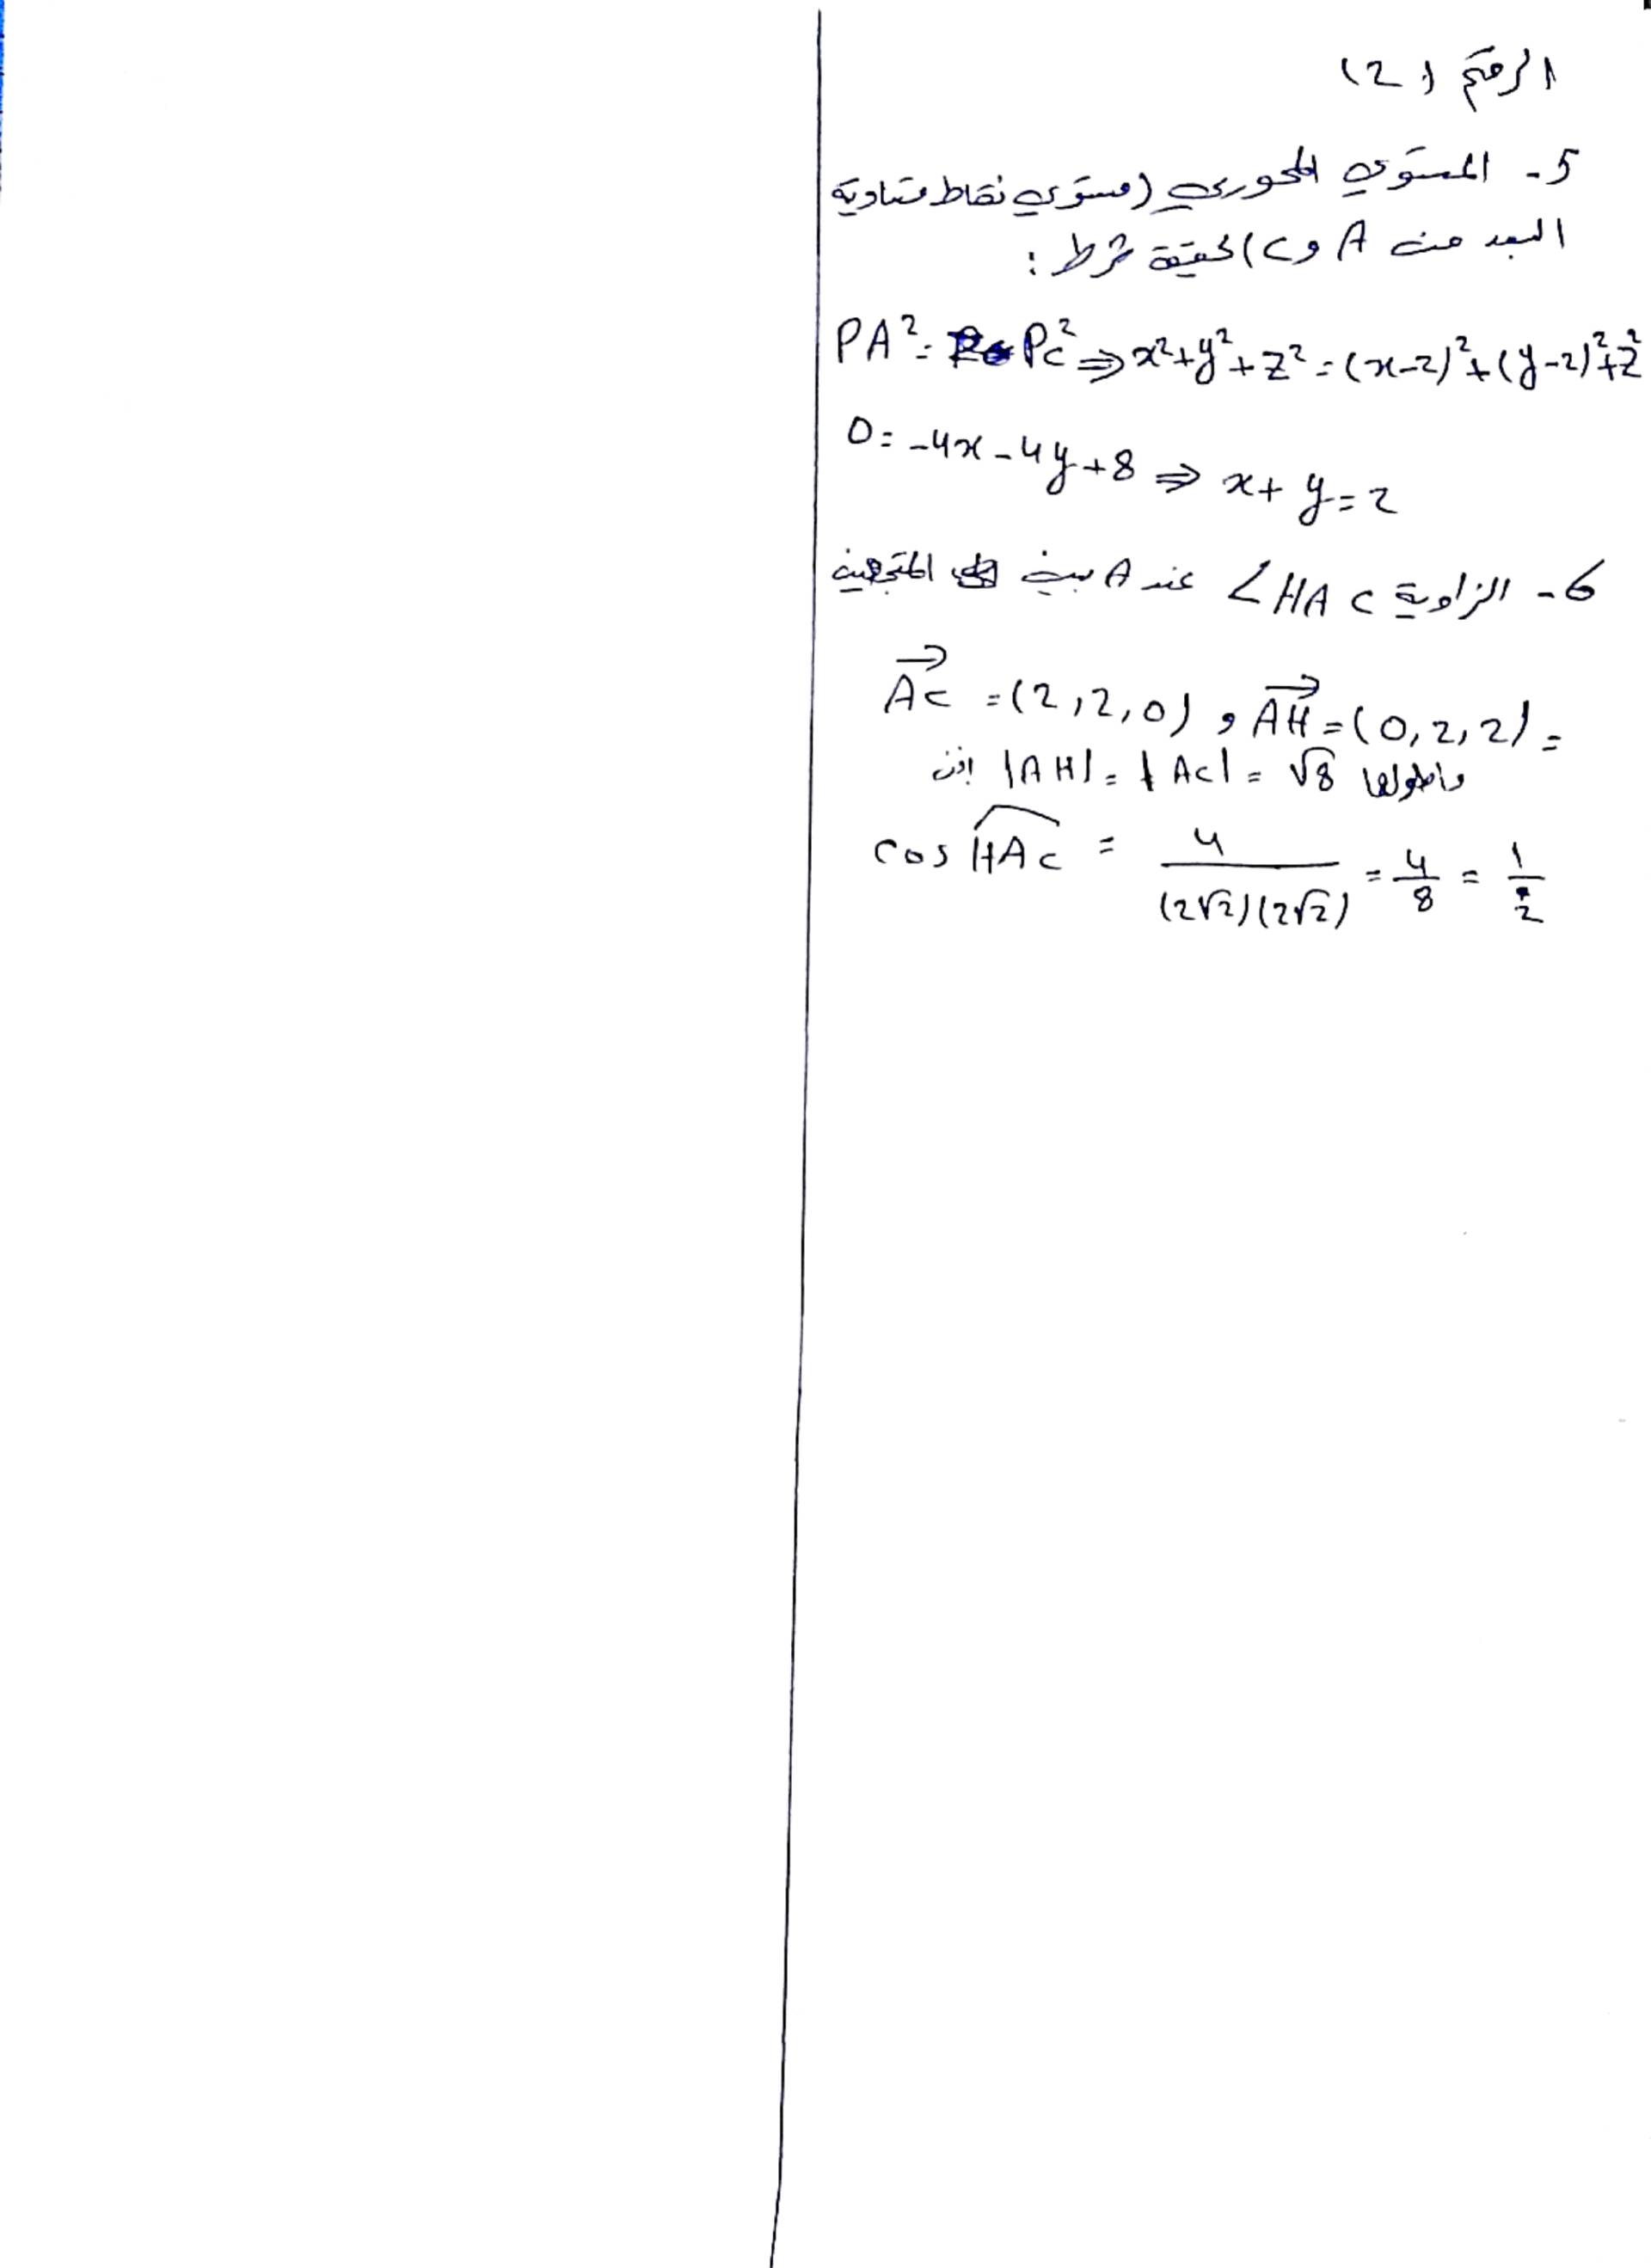 الرقم (2)
5- المستوي المحوري (مستوي نقاط متساوية
البعد من A و C) لحقيقة شرط :
PA² = PC² ⇒ x²+y²+z² = (x-2)²+(y-2)²+z²
0 = -4x-4y+8 ⇒ x+y=2
6- الزاوية ∠HAC عند A بين المتجهين
AC→ = (2,2,0) , AH→ = (0,2,2) =
واطولها |AH| = |AC| = √8 اذن
cos HAC = 4/((2√2)(2√2)) = 4/8 = 1/2